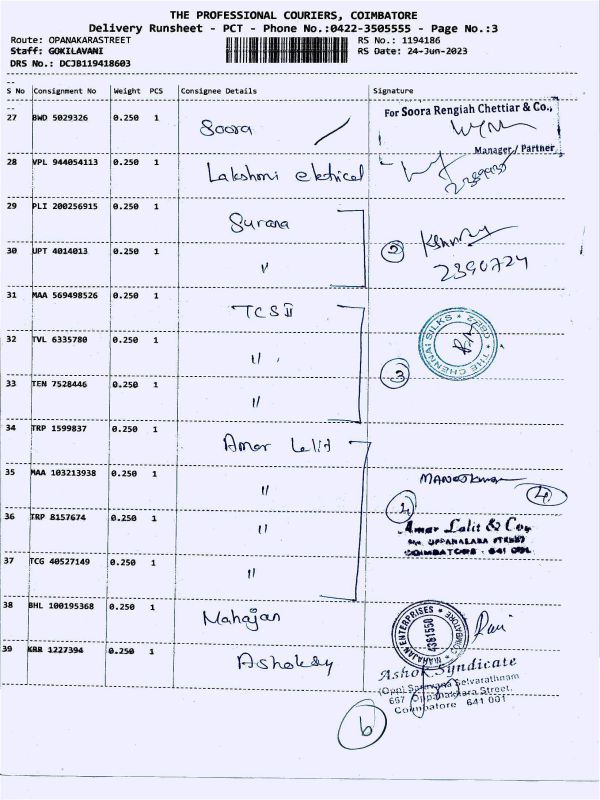 THE PROFESSIONAL COURIERS, COIMBATORE
Delivery Runsheet - PCT - Phone No.:0422-3505555 - Page No.:3
Route: OPANAKARASTREET
RS No.: 1194186
Staff: GOKILAVANI
RS Date: 24-Jun-2023
DRS No.: DCJB119418603
S No Consignment No Weight PCS Consignee Details Signature
27 BWD 5029326 0.250 1 Soora
For Soora Rengiah Chettiar & Co.,
Manager / Partner
28 VPL 944054113 0.250 1 Lakshmi eletrical
29 PLI 200256915 0.250 1 Surana
30 UPT 4014013 0.250 1 "
2
2390724
31 MAA 569498526 0.250 1 TCS II
THE CHENNAI SILKS
32 TVL 6335780 0.250 1 "
33 TEN 7528446 0.250 1 "
3
34 TRP 1599837 0.250 1 Amar Lalit
35 MAA 103213938 0.250 1 "
4
36 TRP 8157674 0.250 1 "
Amar Lalit & Co.,
COIMBATORE - 641 001.
37 TCG 40527149 0.250 1 "
38 BHL 100195368 0.250 1 Mahajan
MAHAJAN ENTERPRISES
4381550
COIMBATORE
Ravi
39 KRR 1227394 0.250 1
Ashok Syndicate
(Opp) Saravana Selvarathnam
667 Oppanakkara Street,
Coimbatore 641 001
6